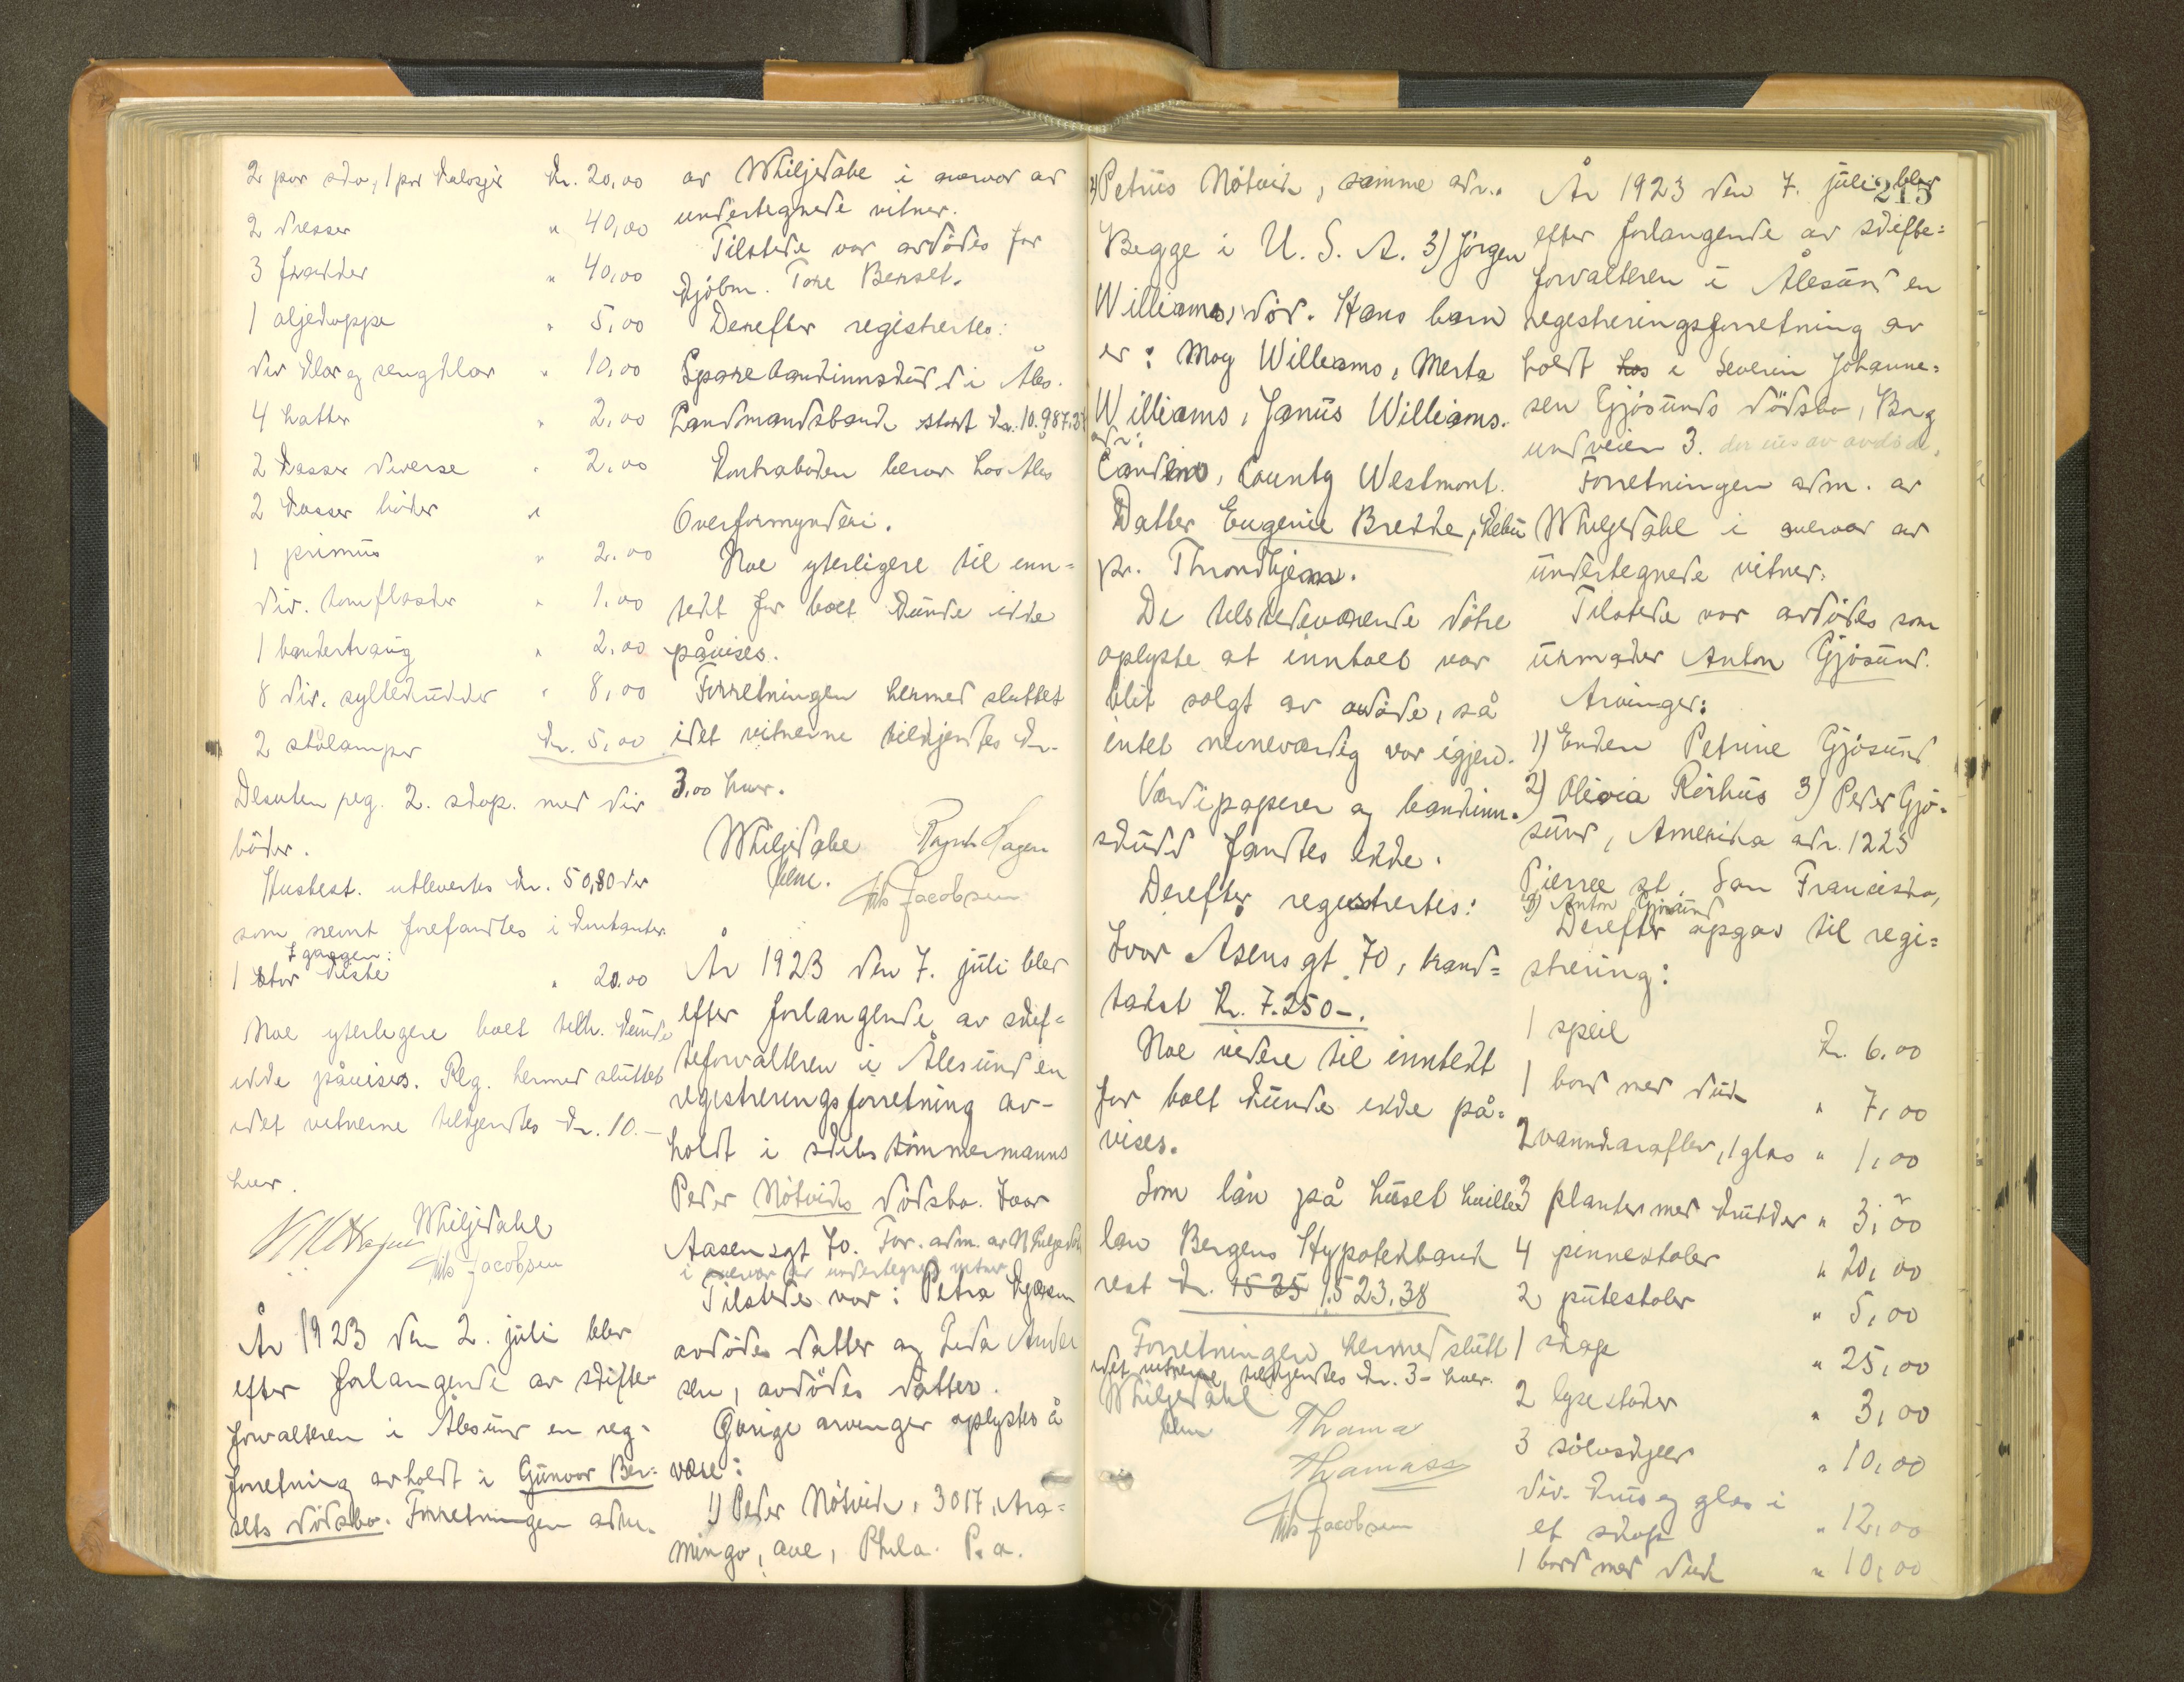 2 par sko, 1 par kalosjer kr. 20,00
2 dresser " 40,00
3 frakker " 40,00
1 oljekappe " 5,00
div klær og sengklær " 10,00
4 hatter " 2,00
2 kasser diverse " 2,00
2 kasser bøker "
1 primus " 2.00
div. tomflasker " 1.00
1 vandertraug " 2.00
8 div. syltekrukker " 8,00
2 stålamper kr. 5,00
Desuten reg. 2. skap. med div
bøker.
Husbest. utlevertes kr. 50,80 der
som nevnt forefandtes i
I gangen:
1 stor kiste " 20.00
Noe yterligere boet tilh. kunde
ikke påvises. Reg. hermed sluttet
idet vitnerne tilkjentes kr. 10.-
hver.
Whiljedahl
Jacobsen
År 1923 den 2. juli blev
efter forlangende av skifte-
forvalteren i Ålesund en reg-
forretning avholdt i Gunvor Ber-
sets dødsbo. Forretningen adm.
av Whiljedahl i nærvær av
undertegnede vitner.
Tilstede var avdødes far
kjøbm. Tore Berset.
Derefter registrertes:
Sparebankinnskudd i Åles.
Landmandsbank stort kr. 10.987,3
Kontraboken beror hos Åles
Overformynderi.
Noe yterligere til inn=
tekt for boet kunde ikke
påvises.
Forretningen hermed sluttet
idet vitnerne tilkjentes kr.
3,00 hver.
Whiljedahl Hagen
Jacobsen
År 1923 den 7. juli blev
efter forlangende av skif=
teforvalteren i Ålesund en
registreringsforretning av-
holdt i skibstømmermanns
Peder Nøtviks dødsbo. Ivar
Aasensgt 70. For. adm. av Whiljedahl
i nærvær av undertegnede vitner
Tilstede var: Petra
avdødes datter og Ander
sen, avdødes datter.
Øvrige arvinger oplystes å
være:
1) Peder Nøtvik, 3017, Ara=
mingo, ave, Phila. P.a.
2) Petrus Nøtvik, samme adr.
Begge i U.S.A. 3) Jørgen
Williams, død. Hans barn
er: May Williams, Merta
Williams, Janus Williams.
adr:
Camden, County Westmont.
Datter Eugenie Brekke,
pr. Throndhjem.
De tilstedeværende døtre
oplyste at innboet var
blit solgt av avdøde, så
intet nevneverdig var igjen.
Verdipapirer og bankinn=
skudd fandtes ikke.
Derefter registrertes:
Ivar Åsens gt. 70, brand=
takst kr. 7.250-.
Noe videre til inntekt
for boet kunde ikke på=
vises.
Som lån på huset hviler
lån Bergens Hypotekbank
rest kr. 1525 1,523.38
Forretningen hermed slutt
idet vitnerne tilkjentes kr. 3- hver.
Whiljedahl
Thoma
Thomass
Jacobsen
215
År 1923 den 7. juli blev
efter forlangende av skifte=
forvalteren i Ålesund en
registreringsforretning av
holdt hos i Severin Johanne=
sen Gjøsunds dødsbo, Borg
undveien 3. der eies av avdøde.
Forretningen adm. av
Whiljedahl i nærvær av
undertegnede vitner.
Tilstede var avdødes søn
urmaker Anton Gjøsund.
Arvinger:
1) Enken Petrine Gjøsund
2) Olivia Rørhus 3) Peder Gjø-
sund, Amerika adr. 1225
Pierree st. San Francisko,
4) Anton Gjøsund
Derefter opgav til regi=
strering:
1 speil kr. 6.00
1 bord med duk " 7,00
2 vannkarafler, 1 glas " 1,00
3 planter med krukker " 3,00
4 pinnestoler " 20,00
2 putestoler " 5,00
1 skap " 25,00
2 lysestaker " 3,00
3 sølvskjeer " 10,00
div. krus og glas i
et skap " 12,00
1 bord med duk " 10,00